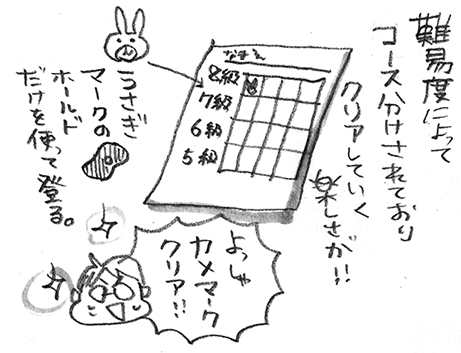 難易度によって
コース分けされており
クリアしていく
楽しさが!!
なまえ
8級
7級
6級
5級
うさぎ
マークの
ホールド
だけを使って登る。
よっしゃ
カメマーク
クリア!!